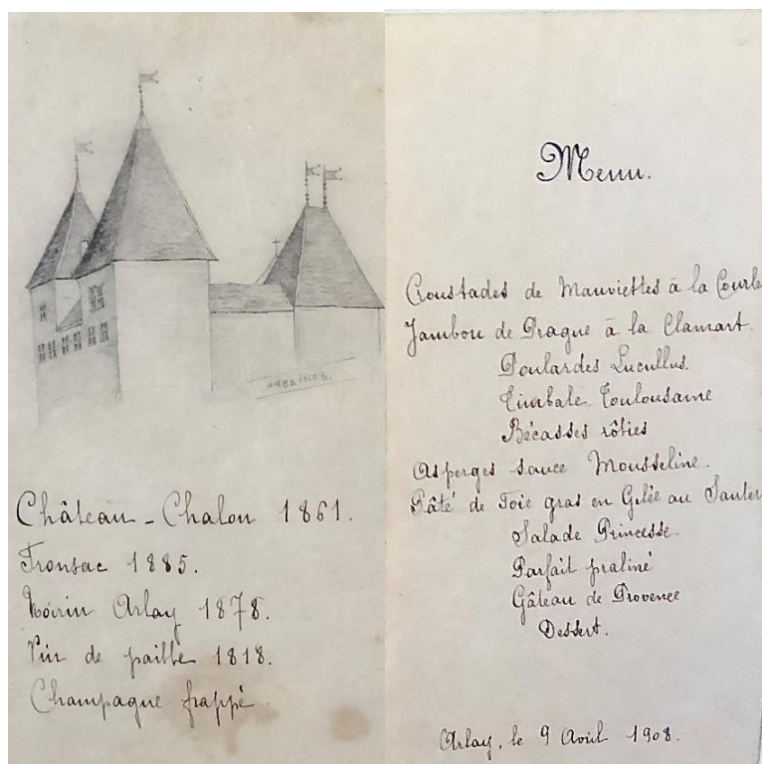 Château-Chalon 1861.
Fronsac 1885.
Noirin Arlay 1878.
Vin de paille 1818.
Champagne frappé.
Menu.
Croustades de Mauviettes à la
Jambon de Prague à la Clamart.
Poulardes Lucullus.
Timbale Toulousaine
Bécasses rôties
Asperges sauce Mousseline.
Pâté de Foie gras en Gelée au
Salade Princesse.
Parfait praliné
Gâteau de Provence
Dessert.
Arlay, le 9 Avril 1908.